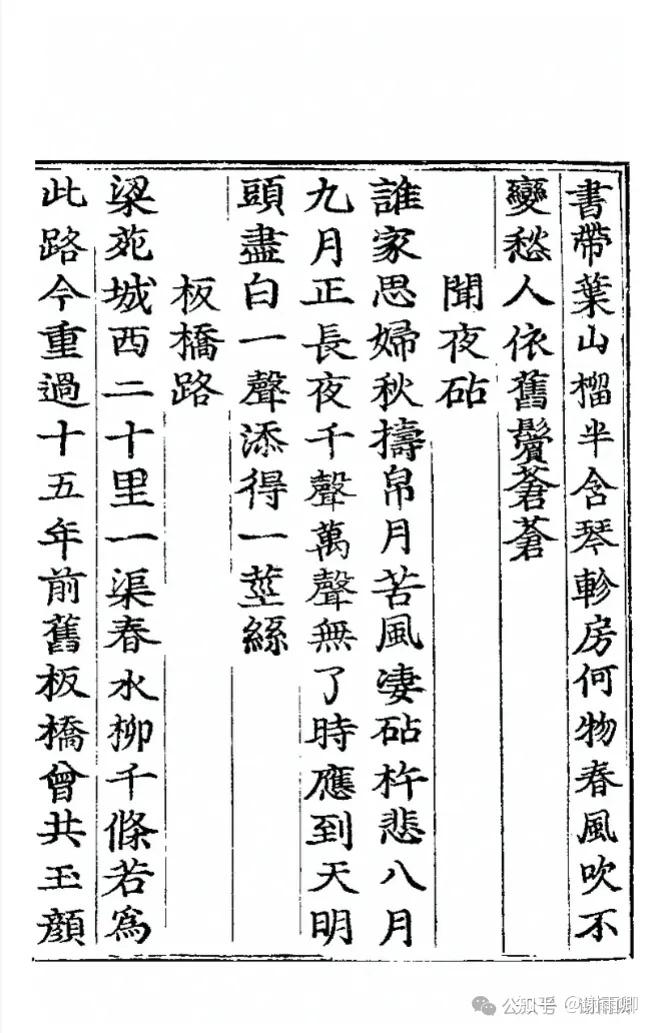 書帶葉山榴半含琴軫房何物春風吹不
變愁人依舊鬢蒼蒼
聞夜砧
誰家思婦秋擣帛月苦風凄砧杵悲八月
九月正長夜千聲萬聲無了時應到天明
頭盡白一聲添得一莖絲
板橋路
梁苑城西二十里一渠春水柳千條若爲
此路今重過十五年前舊板橋曾共玉顔